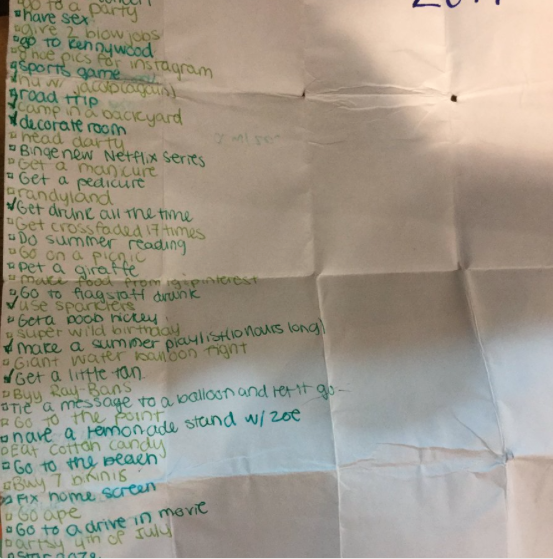 go to a party
have sex
give 2 blow jobs
go to Kennywood
nice pics for instagram
sports game
road trip
camp in a backyard
decorate room
head darty
Binge new Netflix series
Get a manicure
Get a pedicure
randyland
Get drunk all the time
Get crossfaded 17 times
Do summer reading
Go on a picnic
Pet a giraffe
make food from pinterest
Go to flagstaff drunk
use sparklers
Get a boob hickey
super wild birthday
make a summer playlist (10 hours long)
Giant water balloon fight
Get a little tan
Buy Ray-Bans
Tie a message to a balloon and let it go
Go to the point
have a lemonade stand w/ zoe
Eat cotton candy
Go to the beach
Buy 7 bikinis
Fix home screen
Go ape
Go to a drive in movie
artsy 4th of July